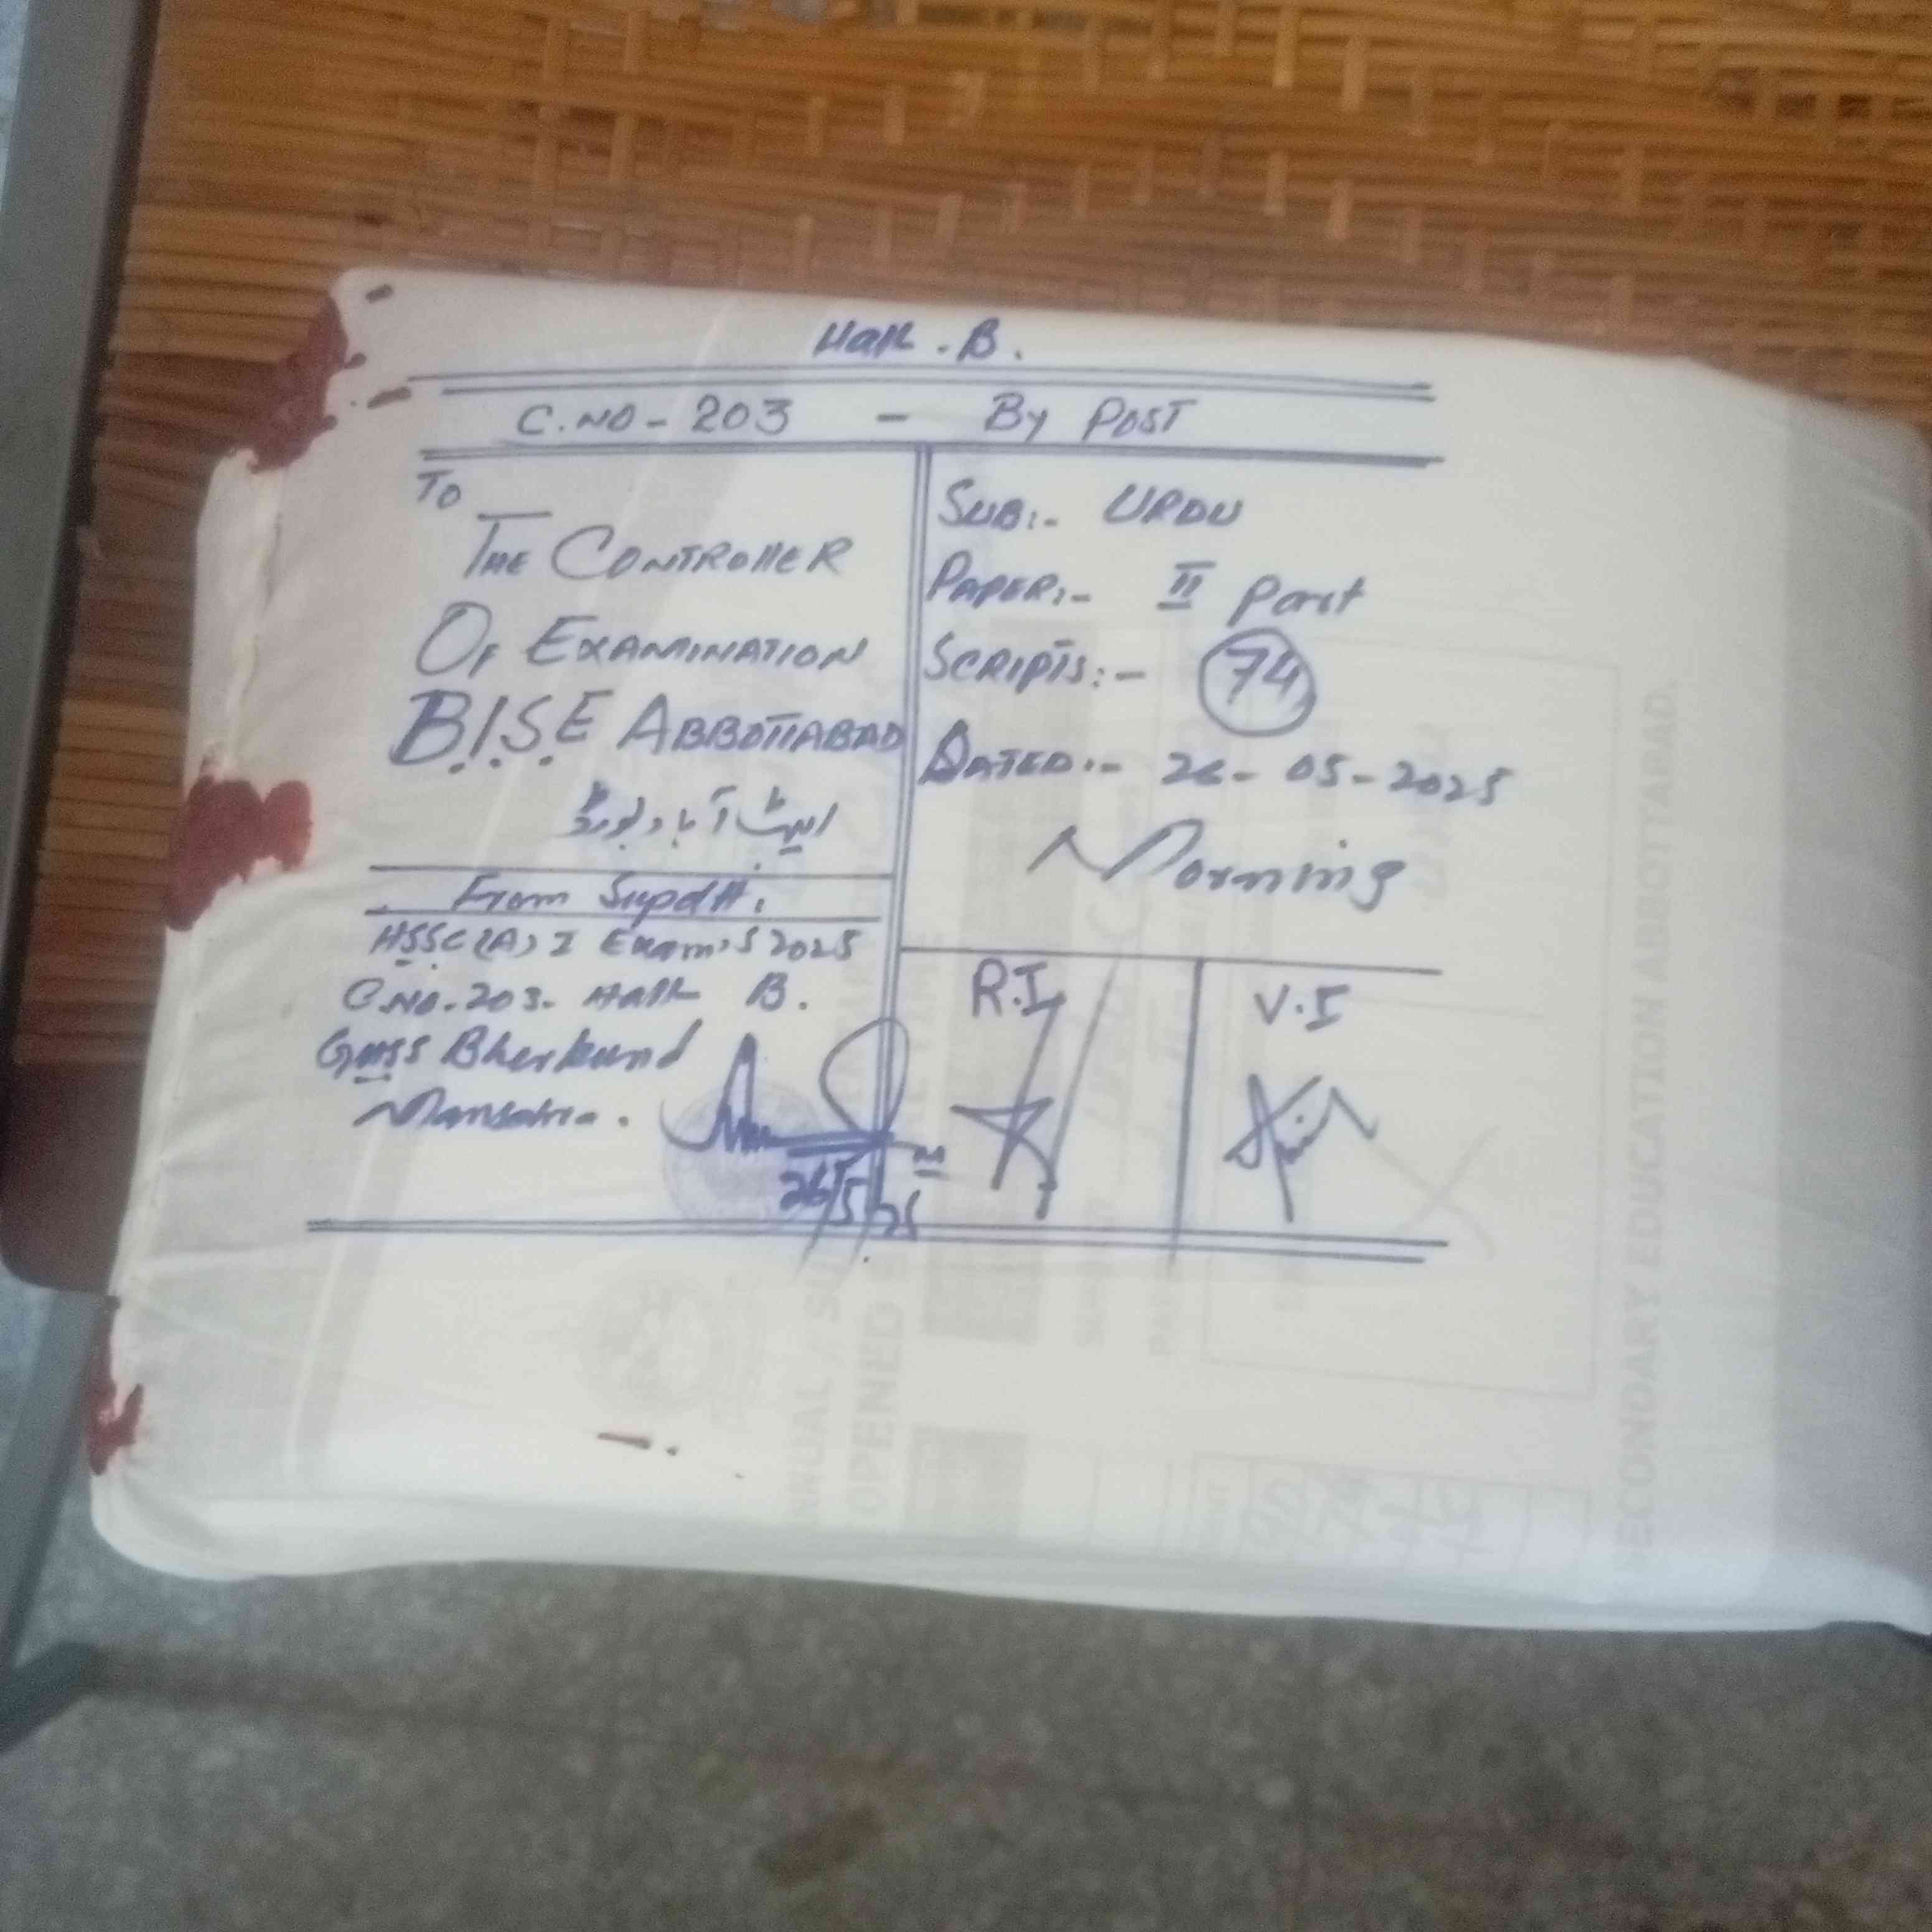 Hall . B.
C.NO - 203 - By POST
To
THE CONTROllER
OF EXAMINATION
B.I.S.E ABBOTTABAD
ایبٹ آباد بورڈ
From Supdtt.
HSSC(A) I Exam,S 2025
C.NO. 203. Hall B.
GHSS Bherkund
Mansehra.
26/5/25
SUB:- URDU
PAPER:- II Part
SCRIPTS:- 74
DATED:- 26-05-2025
Morning
R.I
V.I
SECONDARY EDUCATION ABBOTTABAD.
OPENED